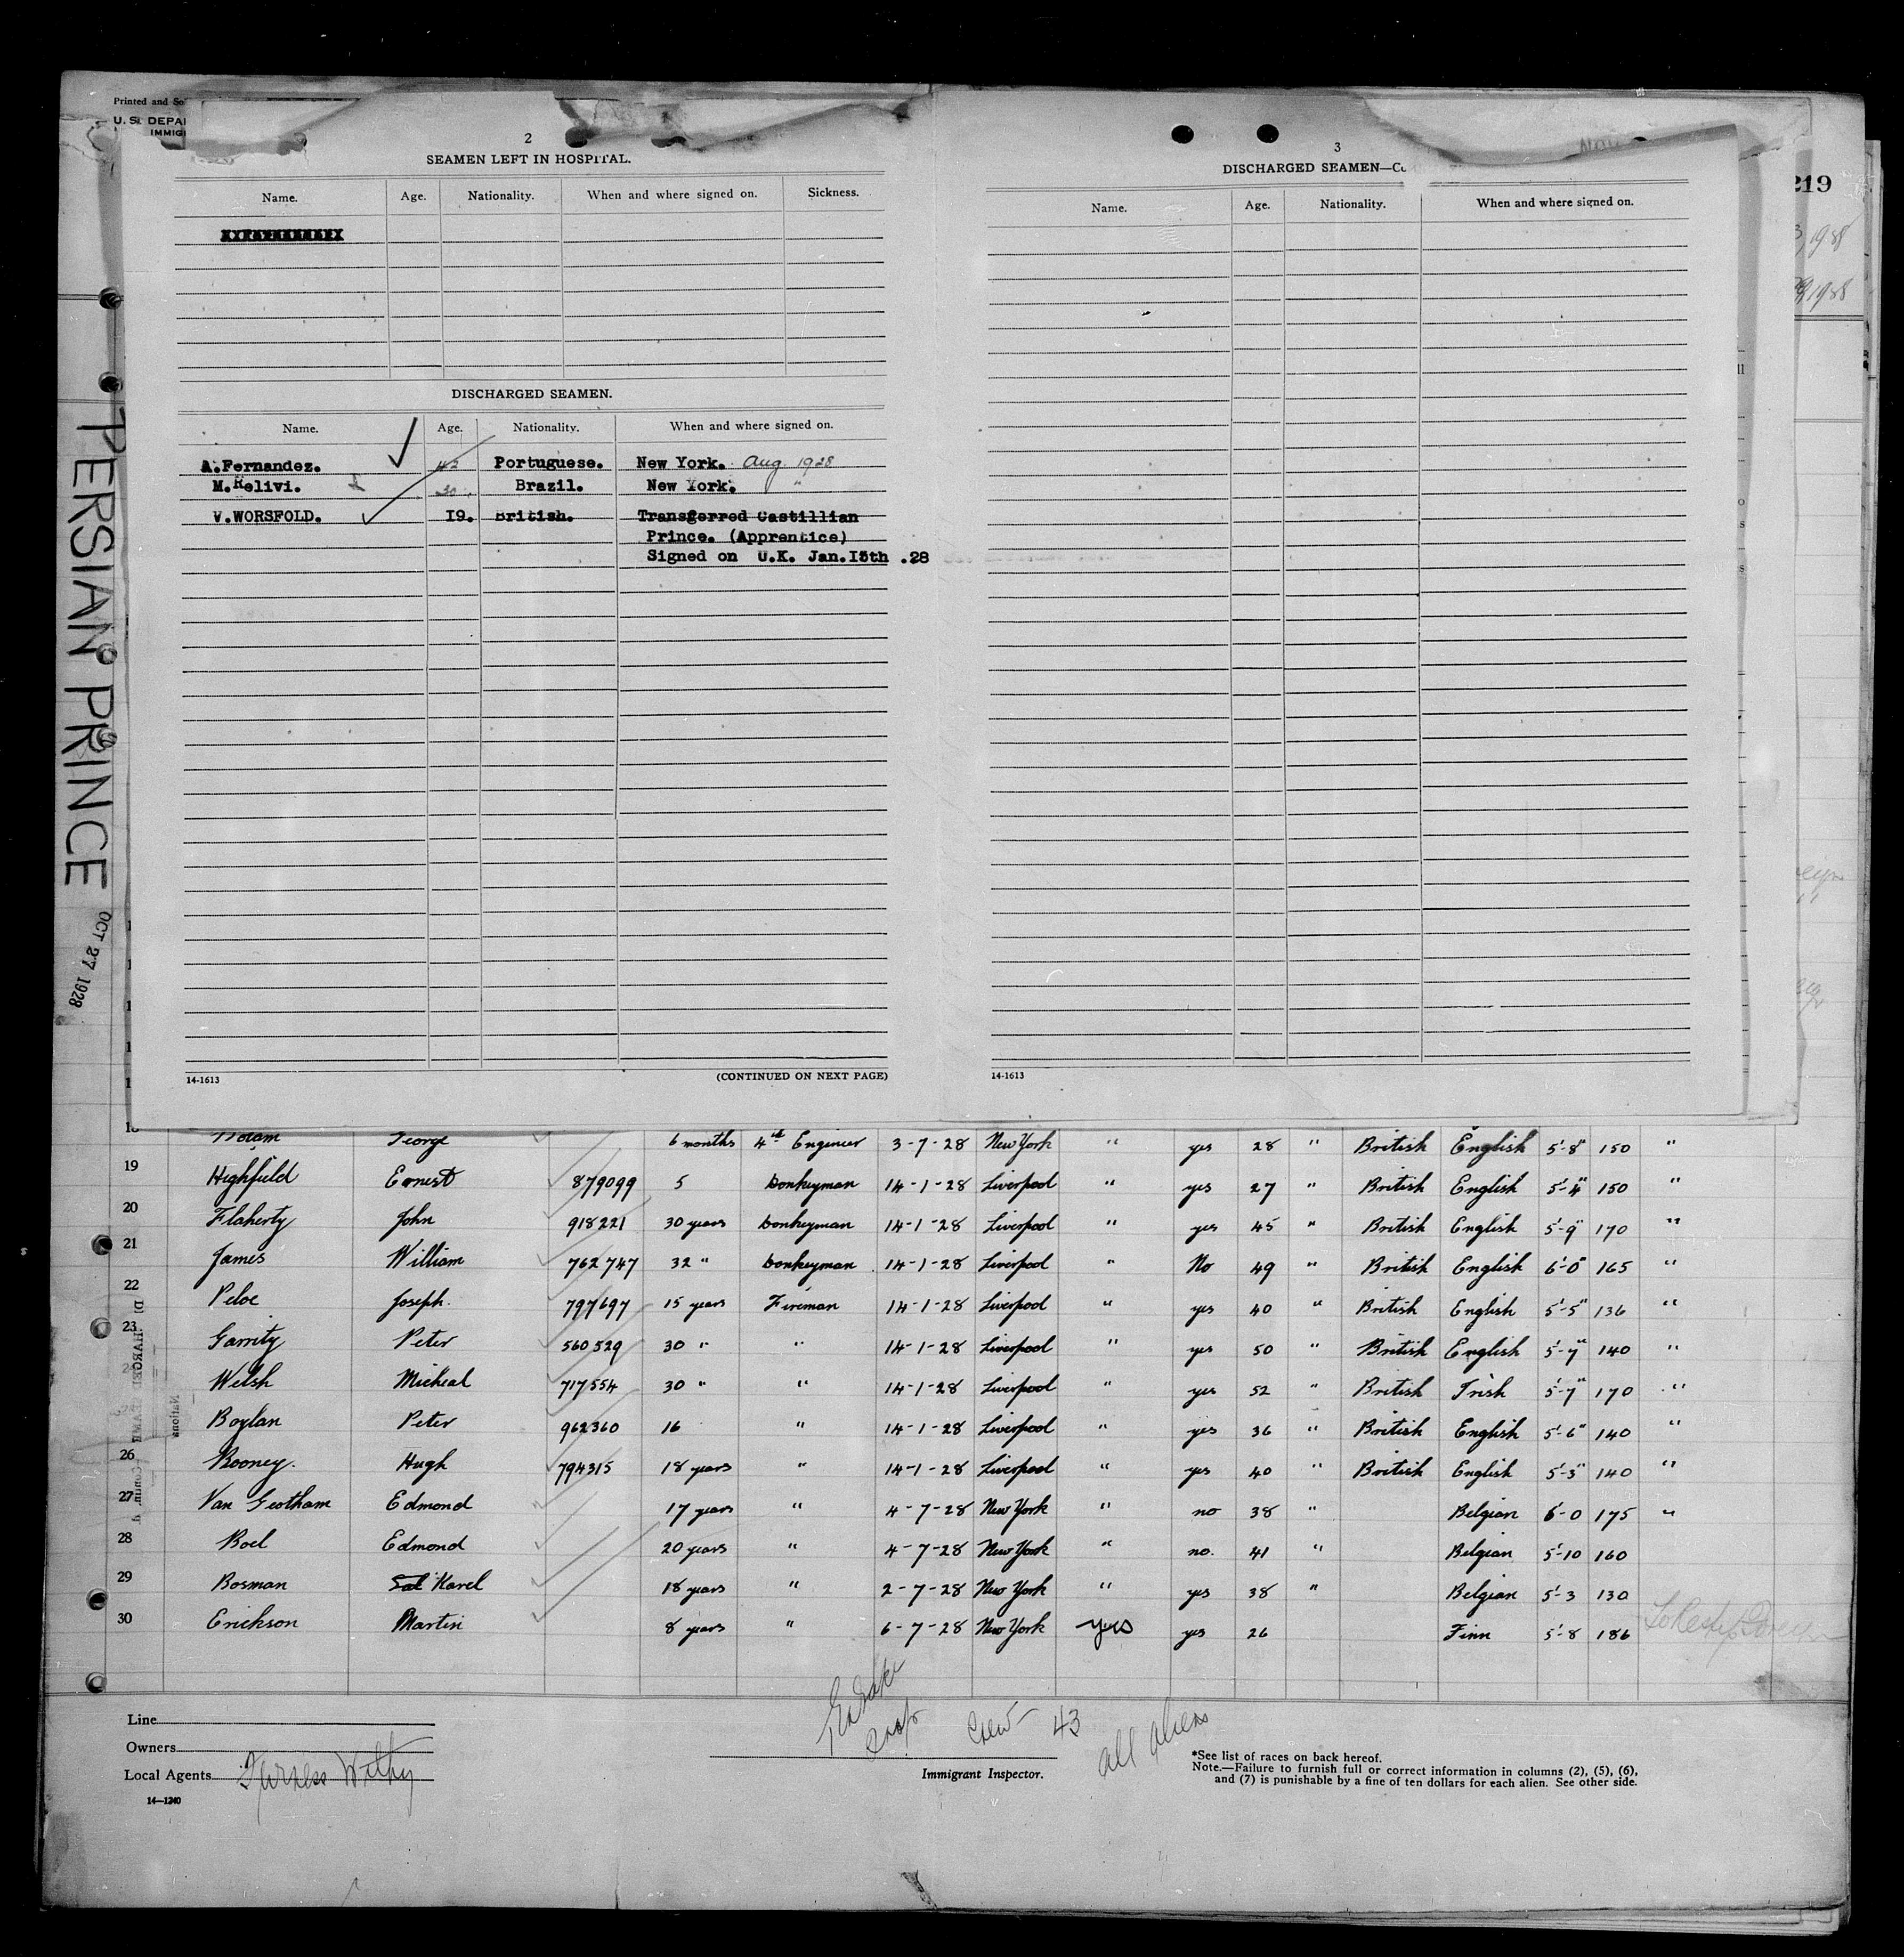 Printed and So
U. S. DEPA
IMMIG
2
SEAMEN LEFT IN HOSPITAL.
Name. Age. Nationality. When and where signed on. Sickness.
DISCHARGED SEAMEN.
Name. Age. Nationality. When and where signed on.
A.Fernandez. 42 Portuguese. New York. Aug. 1928
M.Relivi. 30 Brazil. New York. "
V.WORSFOLD. 19. British. Transferred Castillian
Prince. (Apprentice)
Signed on U.K. Jan.15th .28
14-1613 (CONTINUED ON NEXT PAGE)
3
DISCHARGED SEAMEN—Co
Name. Age. Nationality. When and where signed on.
14-1613
219
3, 1928
1928
PERSIAN PRINCE
OCT 27 1928
18 George 6 months 4th Engineer 3-7-28 New York " yes 28 " British English 5'-8" 150 "
19 Highfield Ernest 879099 5 Donkeyman 14-1-28 Liverpool " yes 27 " British English 5'-4" 150 "
20 Flaherty John 918221 30 years Donkeyman 14-1-28 Liverpool yes 45 " British English 5'-9" 170 "
21 James William 762747 32 " Donkeyman 14-1-28 Liverpool " No 49 " British English 6'-0" 165 "
22 Peloe Joseph. 797697 15 years Fireman 14-1-28 Liverpool " yes 40 " British English 5'-5" 136 "
23 Garrity Peter 560529 30 " " 14-1-28 Liverpool " yes 50 " British English 5'-7" 140 "
Welsh Micheal 717554 30 " " 14-1-28 Liverpool " yes 52 " British Irish 5'-7" 170 "
Boylan Peter 962360 16 " 14-1-28 Liverpool " yes 36 " British English 5'-6" 140 "
26 Rooney. Hugh 794315 18 years " 14-1-28 Liverpool " yes 40 " British English 5'-3" 140 "
27 Van Geotham Edmond 17 years " 4-7-28 New York " no 38 " Belgian 6-0 175 "
28 Boel Edmond 20 years " 4-7-28 New York " no. 41 " Belgian 5'-10 160
29 Bosman Karel 18 years " 2-7-28 New York " yes 38 " Belgian 5'-3 130
30 Erickson Martin 8 years " 6-7-28 New York yes yes 26 Finn 5'-8 186
Line
Owners
Local Agents Furness Withy
14—1240
Crew - 43
all aliens
Immigrant Inspector.
*See list of races on back hereof.
Note.—Failure to furnish full or correct information in columns (2), (5), (6),
and (7) is punishable by a fine of ten dollars for each alien. See other side.